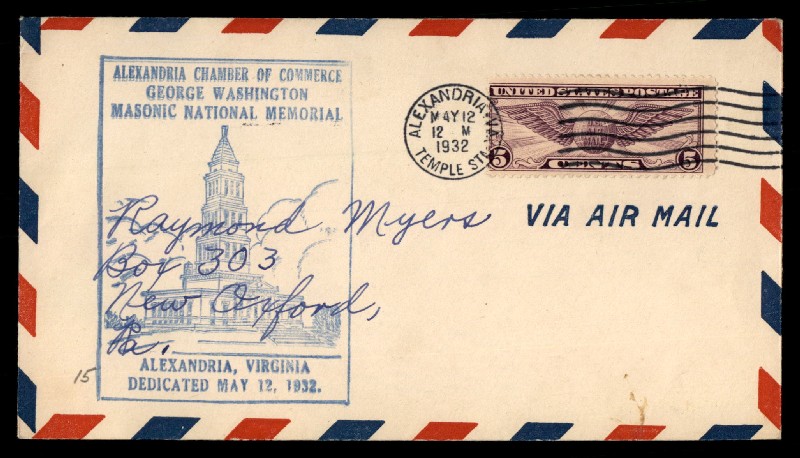 ALEXANDRIA CHAMBER OF COMMERCE
GEORGE WASHINGTON
MASONIC NATIONAL MEMORIAL
ALEXANDRIA, VA.
MAY 12
12 M
1932
TEMPLE STA.
UNITED STATES POSTAGE
5 CENTS 5
VIA AIR MAIL
Raymond Myers
Box 303
New Oxford,
Pa.
ALEXANDRIA, VIRGINIA
DEDICATED MAY 12, 1932.
15